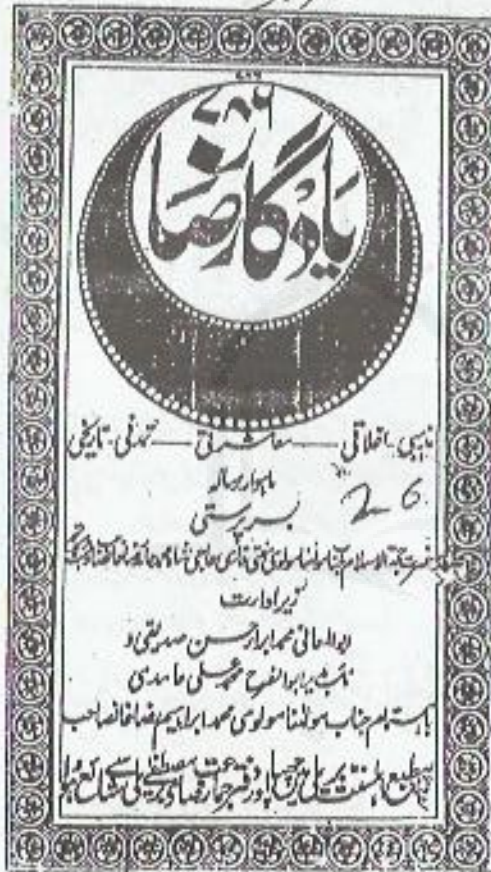 ۷۸۶
یادگار رضا
مذہبی - اخلاقی — معاشرتی — تمدنی - تاریخی
ماہوار رسالہ
26
بسرپرستی
حجۃ الاسلام جناب مولانا مولوی مفتی قاری حاجی شاہ محمد حامد رضا خاں
زیر ادارت
ابوالمعانی محمد ابرار حسن صدیقی و
نائب مدیر ابوالفرح محمد علی حامدی
باہتمام جناب مولٰنا مولوی محمد ابراہیم رضا خانصاحب
مطبع اہلسنت بریلی میں چھپا اور دفتر جماعت رضائے مصطفٰے بریلی سے شائع ہوا